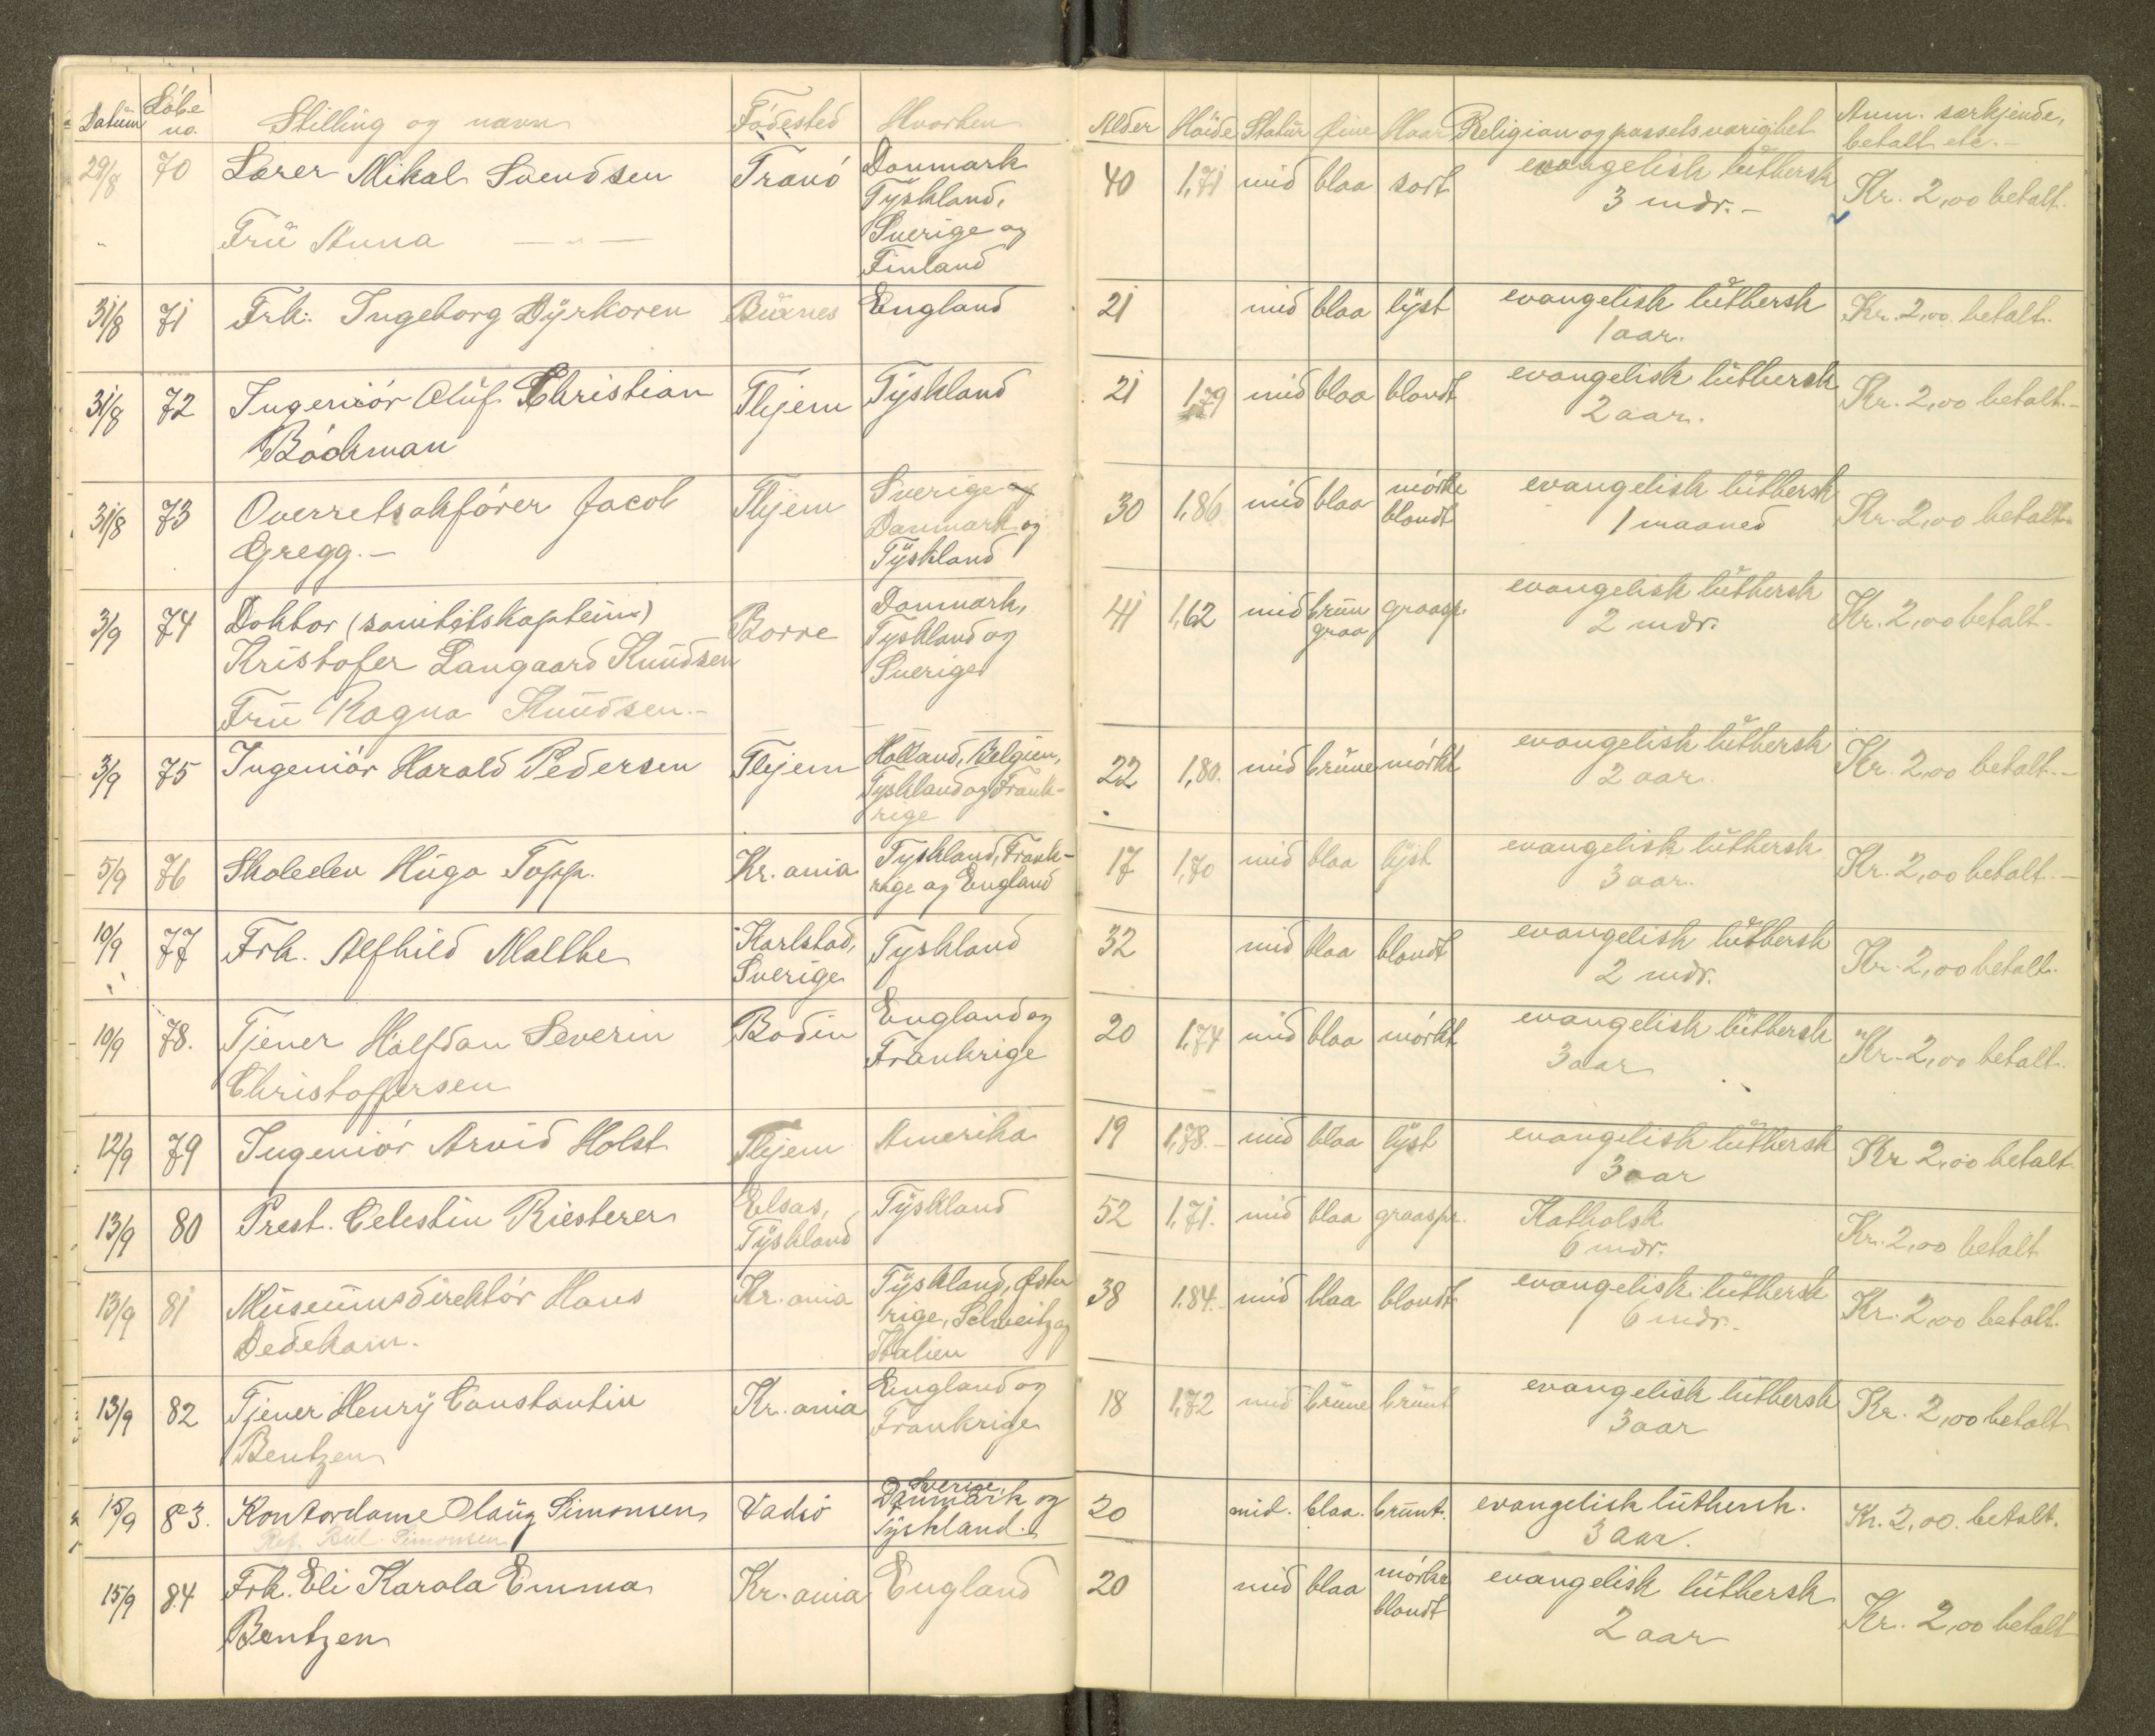 Datum Löbe no. Stilling og navn Födested Hvorhen Alder Höide Statur Øine Haar Religion og passets varighet Anm. særkjende, betalt etc.-
29/8 70 Lærer Mikal Svendsen Tranö Danmark 40 1,71 mid blaa sort evangelisk luthersk Kr. 2,00 betalt.
Tyskland, 3 mdr.-
" Fru Anna — " — Sverige og
Finland
31/8 71 Frk. Ingeborg Dyrkoren England 21 mid blaa lyst evangelisk luthersk Kr. 2,00 betalt.
1 aar.
31/8 72 Ingeniör Oluf Christian Thjem Tyskland 21 1,79 mid blaa blondt evangelisk luthersk Kr. 2,00 betalt.-
Böckman 2 aar.
31/8 73 Overretsakförer Jacob Thjem Sverige og 30 1,86 mid blaa mörke evangelisk luthersk Kr. 2,00 betalt-
Gregg.- Danmark og blondt 1 maaned
Tyskland
3/9 74 Doktor (sanitetskaptein) Borre Danmark, 41 1,62 mid brun graaspr. evangelisk luthersk Kr. 2,00 betalt-
Kristofer Langaard Knudsen Tyskland og graa 2 mdr.
Fru Ragna Knudsen.- Sverige
3/9 75 Ingeniör Harald Pedersen Thjem Holland, Belgien, 22 1,80. mid brune mörkt evangelisk luthersk Kr. 2,00 betalt.-
Tyskland og Frank- 2 aar.
rige
5/9 76 Skoleelev Hugo Topp. Kr.ania Tyskland, Frank- 17 1,70 mid blaa lyst evangelisk luthersk Kr. 2,00 betalt.-
rige og England 3 aar.
10/9 77 Frk. Alfhild Malthe Karlstad, Tyskland 32 mid blaa blondt evangelisk luthersk Kr. 2,00 betalt.
Sverige 2 mdr.
10/9 78. Tjener Halfdan Severin Bodin England og 20 1,74 mid blaa mörkt evangelisk luthersk Kr. 2,00 betalt.
Christoffersen Frankrige 3 aar
12/9 79 Ingeniör Arvid Holst Thjem Amerika 19 1,78.- mid blaa lyst evangelisk luthersk Kr 2,00 betalt.
3 aar
13/9 80 Prest. Celestin Riesterer Elsas, Tyskland 52 1,71. mid blaa graaspr. Katholsk Kr. 2,00 betalt
Tyskland 6 mdr.
13/9 81 Museumsdirektör Hans Kr.ania Tyskland, Øster 38 1.84.- mid blaa blondt evangelisk luthersk Kr. 2,00 betalt.
Dedekam. rige, Schweitz og 6 mdr.-
Italien
13/9 82 Tjener Henry Constantin Kr.ania England og 18 1,72 mid brune brunt evangelisk luthersk Kr. 2,00 betalt
Bentzen Frankrige 3 aar
15/9 83. Kontordame Olaug Simonsen Vadsö Sverige, Danmark og 20 mid. blaa. brunt. evangelisk luthersk. Kr. 2,00. betalt.
Simonsen Tyskland. 3 aar.
15/9 84 Frk. Eli Karola Emma Kr.ania England 20 mid blaa mörke evangelisk luthersk Kr. 2,00 betalt
Bentzen blondt 2 aar